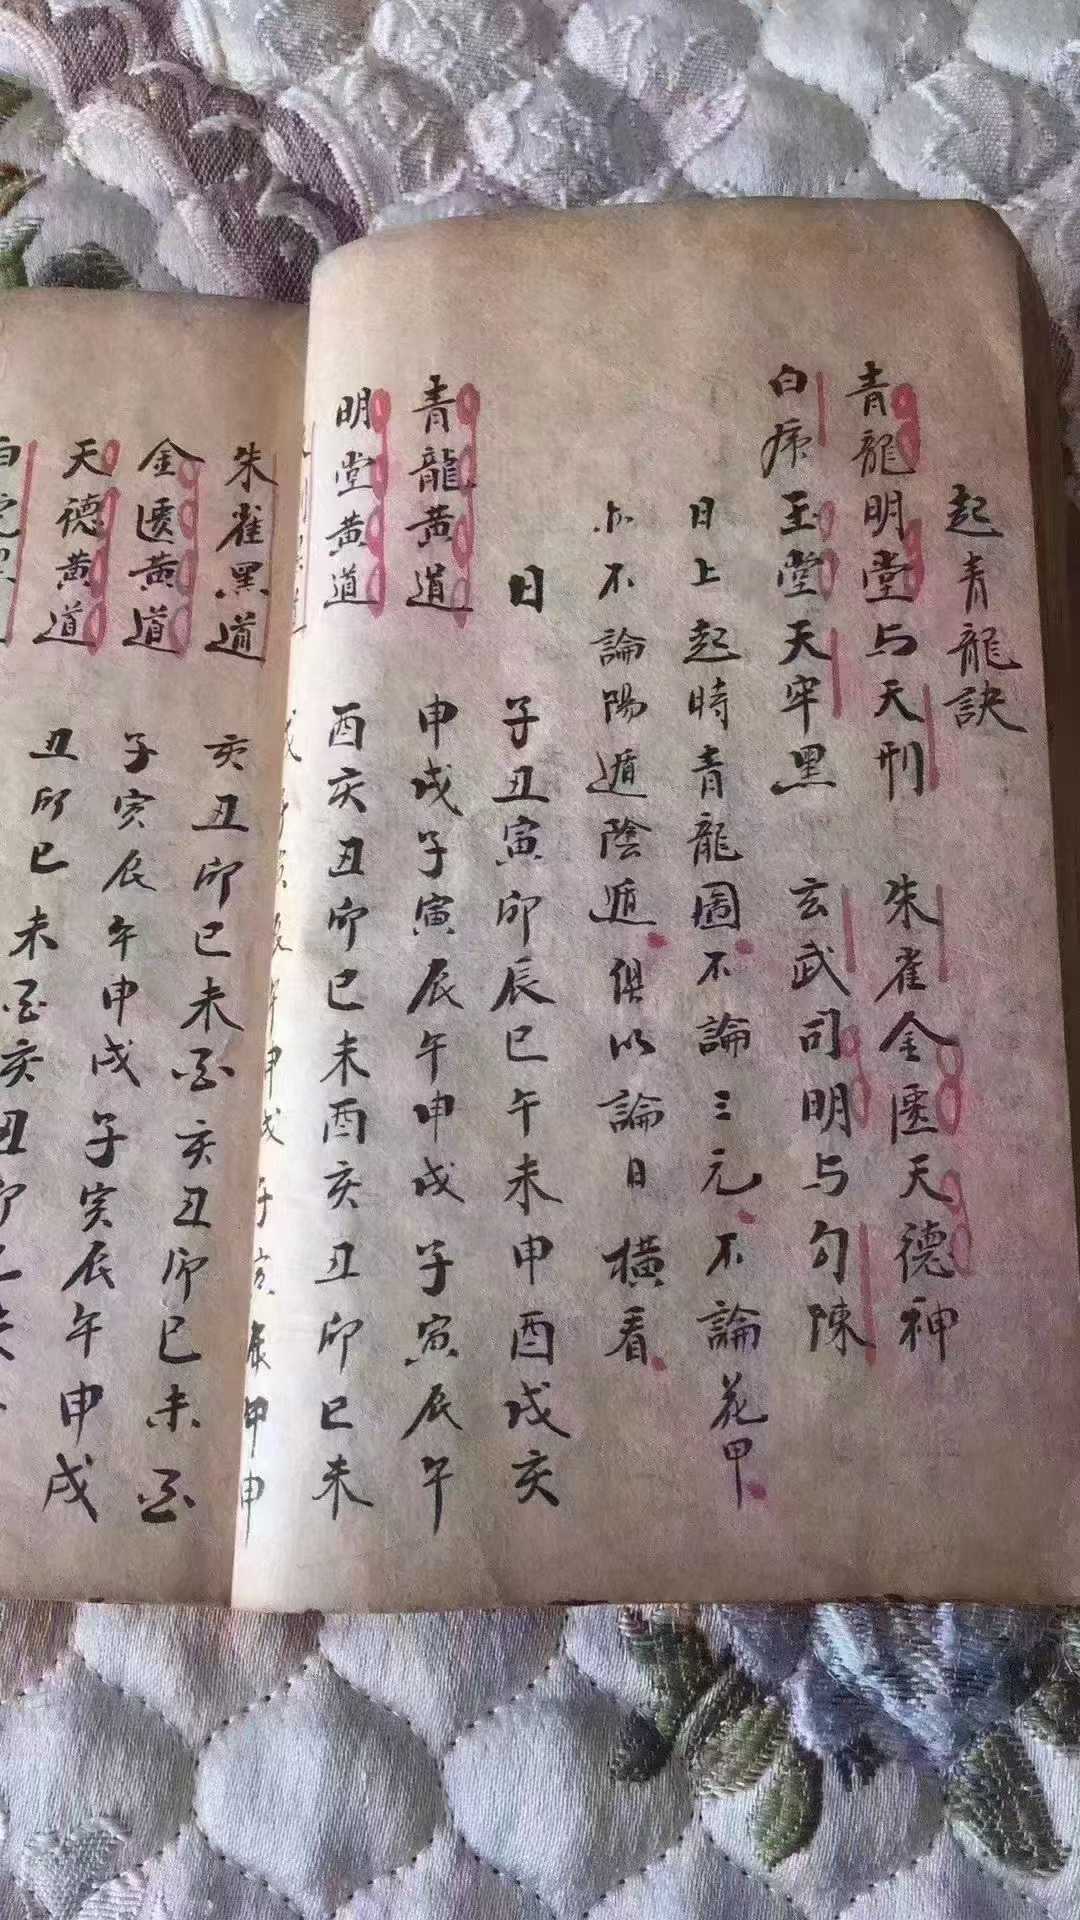 起青龍訣
青龍明堂与天刑 朱雀金匱天德神
白虎玉堂天牢黑 玄武司明与勾陳
日上起時青龍圖不論三元不論花甲
亦不論陽遁陰遁俱以論日橫看
日 子丑寅卯辰巳午未申酉戌亥
青龍黃道 申戌子寅辰午申戌子寅辰午
明堂黃道 酉亥丑卯巳未酉亥丑卯巳未
戌子寅辰午申戌子寅辰
朱雀黑道 亥丑卯巳未酉亥丑卯巳未酉
金匱黃道 子寅辰午申戌子寅辰午申戌
天德黃道 丑卯巳未酉亥丑卯